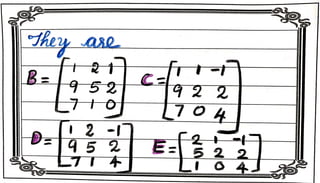 They are
B = [1 2 1
9 5 2
7 1 0]
C = [1 1 -1
9 2 2
7 0 4]
D = [1 2 -1
9 5 2
7 1 4]
E = [2 1 -1
5 2 2
1 0 4]